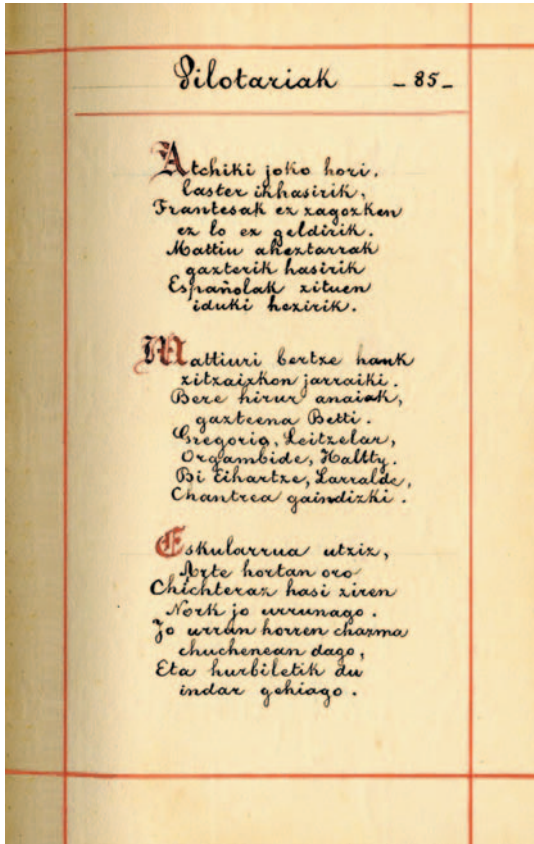 Pilotariak – 85 –
Atchiki joko hori.
laster ikhasirik,
Frantesak ez zagozken
ez lo ez geldirik.
Mattiu aheztarrak
gazterik hasirik
Españolak zituen
iduki hezirik.
Mattiuri bertze hauk
zitzaizkon jarraiki.
Bere hirur anaiak,
gazteena Betti.
Gregorio, Leitzelar,
Orgambide, Haltty.
Bi Eihartze, Larralde,
Chantrea gaindizki.
Eskularrua utziz,
Arte hortan oro
Chichteraz hasi ziren
Nork jo urrunago.
Jo urrun horren charma
chuchenean dago,
Eta hurbiletik du
indar gehiago.